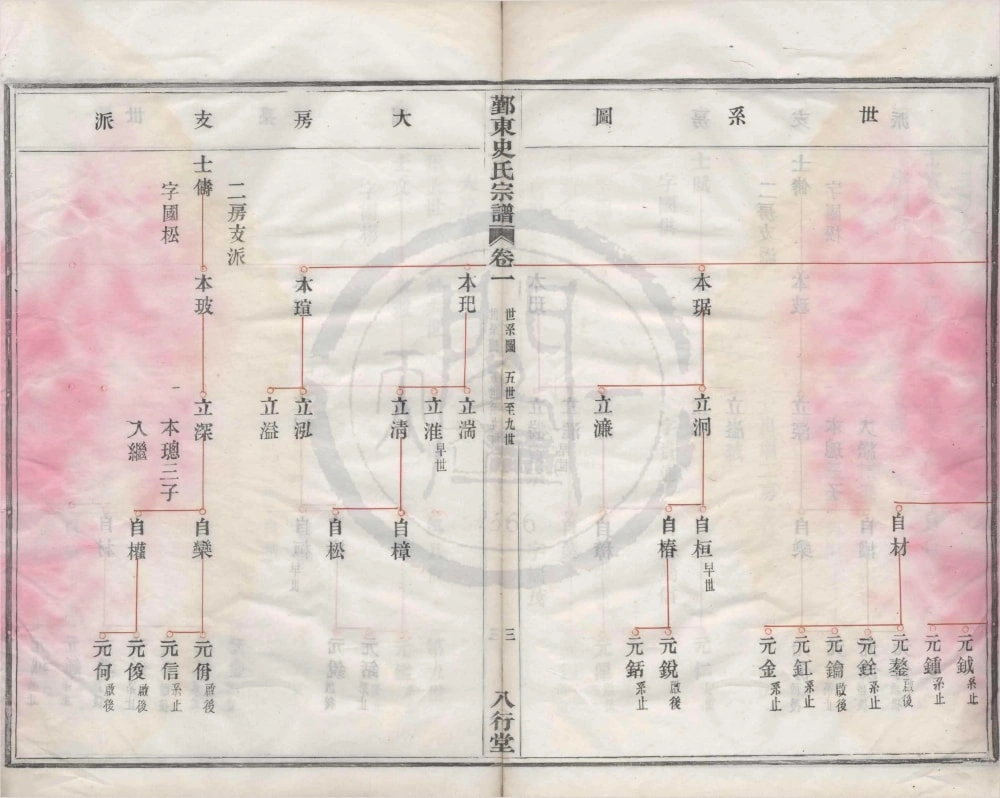 世系圖
本琚
立泂
立濂
自材
自桓 早世
自椿
元鉞 系止
元鍾 系止
元鏊 啟後
元銓 系止
元鑰 啟後
元釭 系止
元金 系止
元銳 啟後
元銛 系止
鄞東史氏宗譜 卷一
世系圖 五世至九世
三
八行堂
大房支派
本玘
本瑄
二房支派
士儔
字國松
本玻
立淸
立淮 早世
立湍
立泓
立溢
立深
一
本璁三子
入繼
自樟
自松
自欒
自權
元佾 啟後
元信 系止
元俊 啟後
元何 啟後